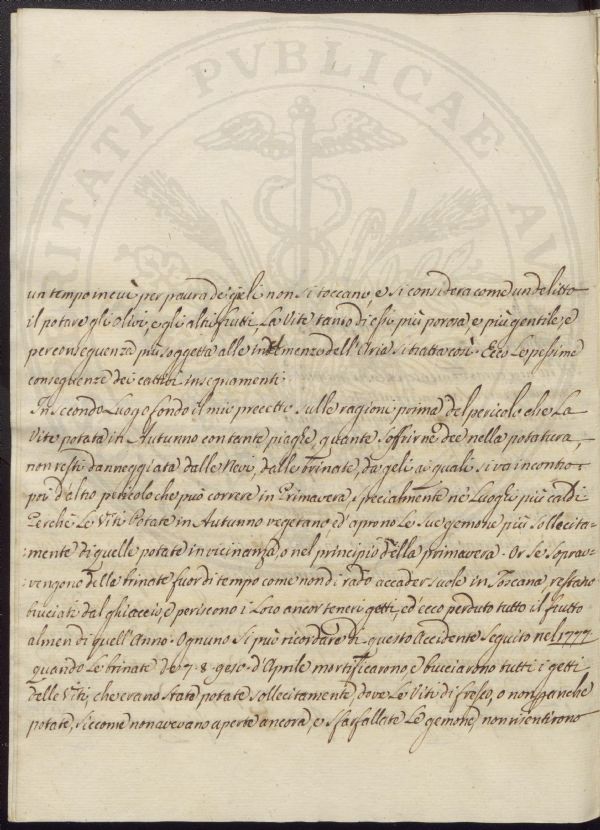 RITATI PVBLICAE AV
un tempo in cui per paura de' gieli non si toccano, e si considera come un delitto
il potare gli Olivi, e gli altri frutti, La Vite tanto di essi più porosa e più gentile, e
per conseguenza più soggetta alle inclemenze dell'Aria si tratta così. Ecco le pessime
conseguenze dei cattivi insegnamenti.
In secondo Luogo fondo il mio precetto sulle ragioni, prima del pericolo che La
Vite potata in Autunno con tante piaghe, quante soffrirne dee nella potatura,
non resti danneggiata dalle Nevi, dalle brinate, da' geli ai quali si va incontro =
poi d'altro pericolo che può correre in Primavera specialmente ne' Luoghi più caldi
Perchè Le Viti Potate in Autunno vegetano, ed aprono Le sue gemme più sollecita-
:mente di quelle potate in vicinanza, o nel principio della primavera. Or se soprav-
:vengono delle brinate fuor di tempo come non di rado accader suole in Toscana, restano
bruciati dal ghiaccio, e periscono i Loro ancor teneri getti, ed ecco perduto tutto il frutto
almen di quell'Anno. Ognuno si può ricordare di questo Accidente seguito nel 1777
quando Le brinate de 7. 8. e 9 d'Aprile mortificarono, e bruciarono tutti i getti
delle Viti, che erano state potate sollecitamente, dove Le Viti di fresco, o non per anche
potate, siccome non avevano aperte ancora, e sfarfallate Le gemme, non risentirono